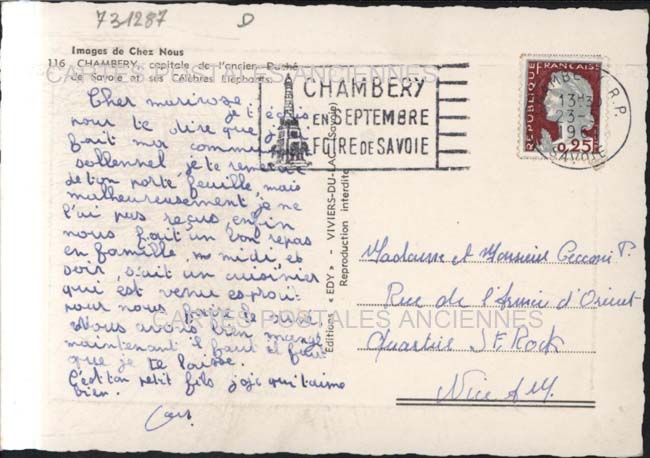 731287 D
Images de Chez Nous
116 CHAMBERY, capitale de l'ancien Duché
de Savoie et ses Célèbres Eléphants.
CARTES POSTALES ANCIENNES
CHAMBERY
EN SEPTEMBRE
FOIRE DE SAVOIE
REPUBLIQUE FRANCAISE
0,25
CHAMBERY R.P.
13H
23-
19
SAVOIE
Cher mariroze je t'écris
pour te dire que j'ai
fait ma communion
sollennel, je te remercie
de ton porte feuille, mais
malheureusement je ne
l'ai pas reçus enfin
nous fait un bon repas
en famille, midi et
soir, s'uit un cuisinier
qui est venue esproit
pour nous faire le
Nous avons bien mangé
maintenant il faut
que je te laisse.
C'est ton petit fils jojo qui t'aime
bien.
Editions « EDY » - VIVIERS-DU-LAC (Savoie)
Reproduction interdite
Madame et Monsieur Cecconi P.
Rue de l'Armée d'Orient
CARTES POSTALES ANCIENNES
Quartier St. Rock
Nice A.M.